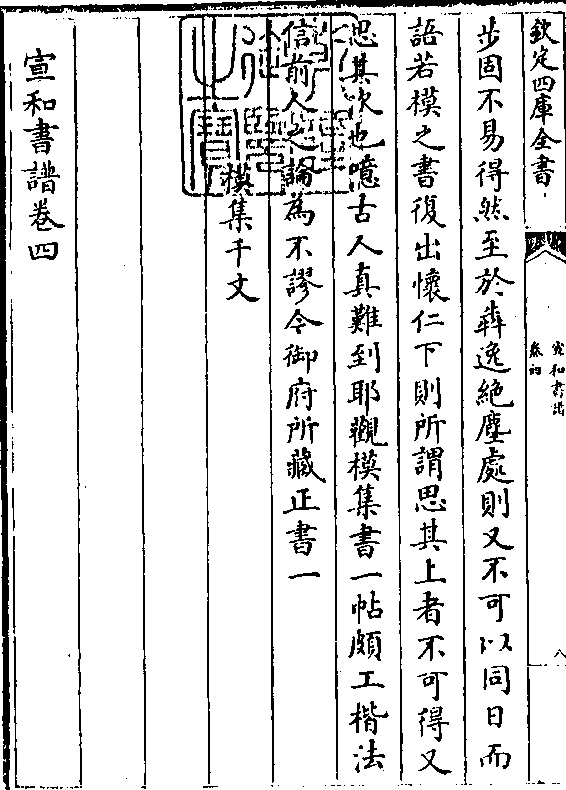 欽定四庫全書
宣和書譜
卷四
八
步固不易得然至於犇逸絶塵處則又不可以同日而
語若模之書復出懷仁下則所謂思其上者不可得又
思其次也噫古人真難到耶觀模集書一帖頗工楷法
信前人之論為不謬今御府所藏正書一
模集千文
宣和書譜卷四